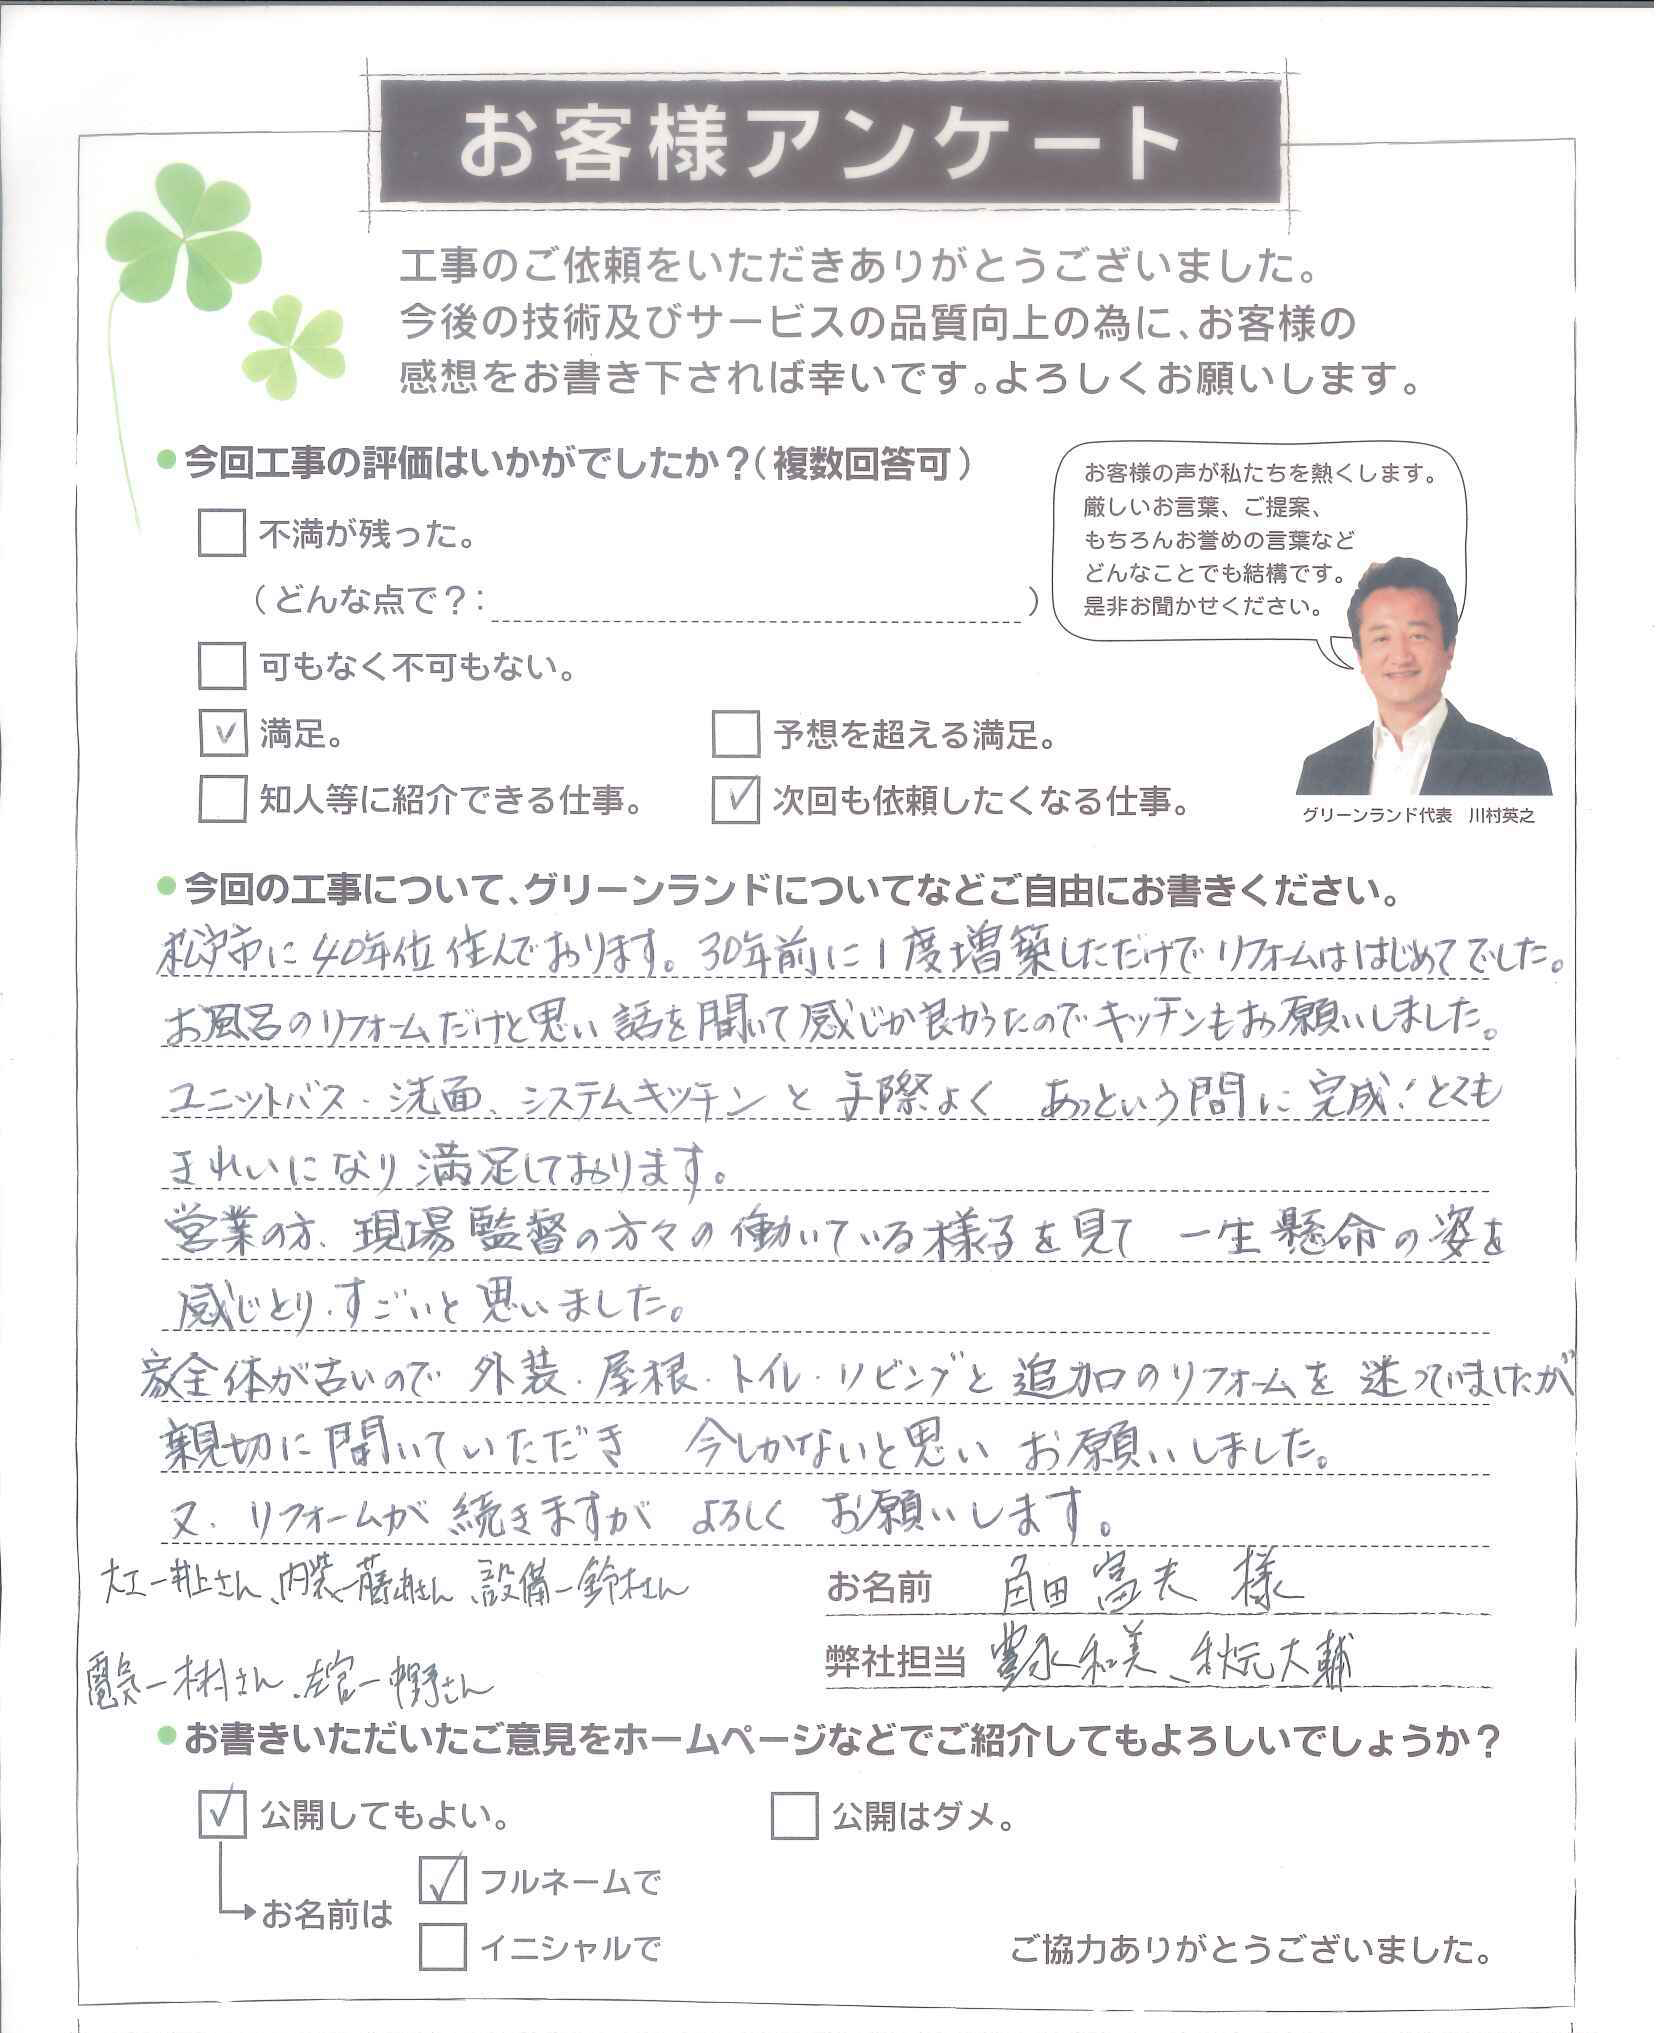 お客様アンケート
工事のご依頼をいただきありがとうございました。
今後の技術及びサービスの品質向上の為に、お客様の
感想をお書き下されば幸いです。よろしくお願いします。
今回工事の評価はいかがでしたか？(複数回答可)
不満が残った。
(どんな点で？: )
可もなく不可もない。
満足。
予想を超える満足。
知人等に紹介できる仕事。
次回も依頼したくなる仕事。
お客様の声が私たちを熱くします。
厳しいお言葉、ご提案、
もちろんお誉めの言葉など
どんなことでも結構です。
是非お聞かせください。
グリーンランド代表 川村英之
今回の工事について、グリーンランドについてなどご自由にお書きください。
松戸市に40年位住んでおります。30年前に1度増築しただけでリフォームははじめてでした。
お風呂のリフォームだけと思い話を聞いて感じが良かったのでキッチンもお願いしました。
ユニットバス・洗面、システムキッチンと手際よく あっという間に完成！とても
きれいになり満足しております。
営業の方、現場監督の方々の働いている様子を見て 一生懸命の姿を
感じとり、すごいと思いました。
家全体が古いので 外装・屋根・トイレ・リビングと追加のリフォームを迷っていましたが
親切に聞いていただき 今しかないと思い お願いしました。
又、リフォームが続きますが よろしく お願いします。
大工ー井上さん、内装ー さん、設備ー鈴木さん
電気ー さん、左官ー さん
お名前 角田富夫 様
弊社担当 豊永和美、秋元大輔
お書きいただいたご意見をホームページなどでご紹介してもよろしいでしょうか？
公開してもよい。
公開はダメ。
お名前は
フルネームで
イニシャルで
ご協力ありがとうございました。